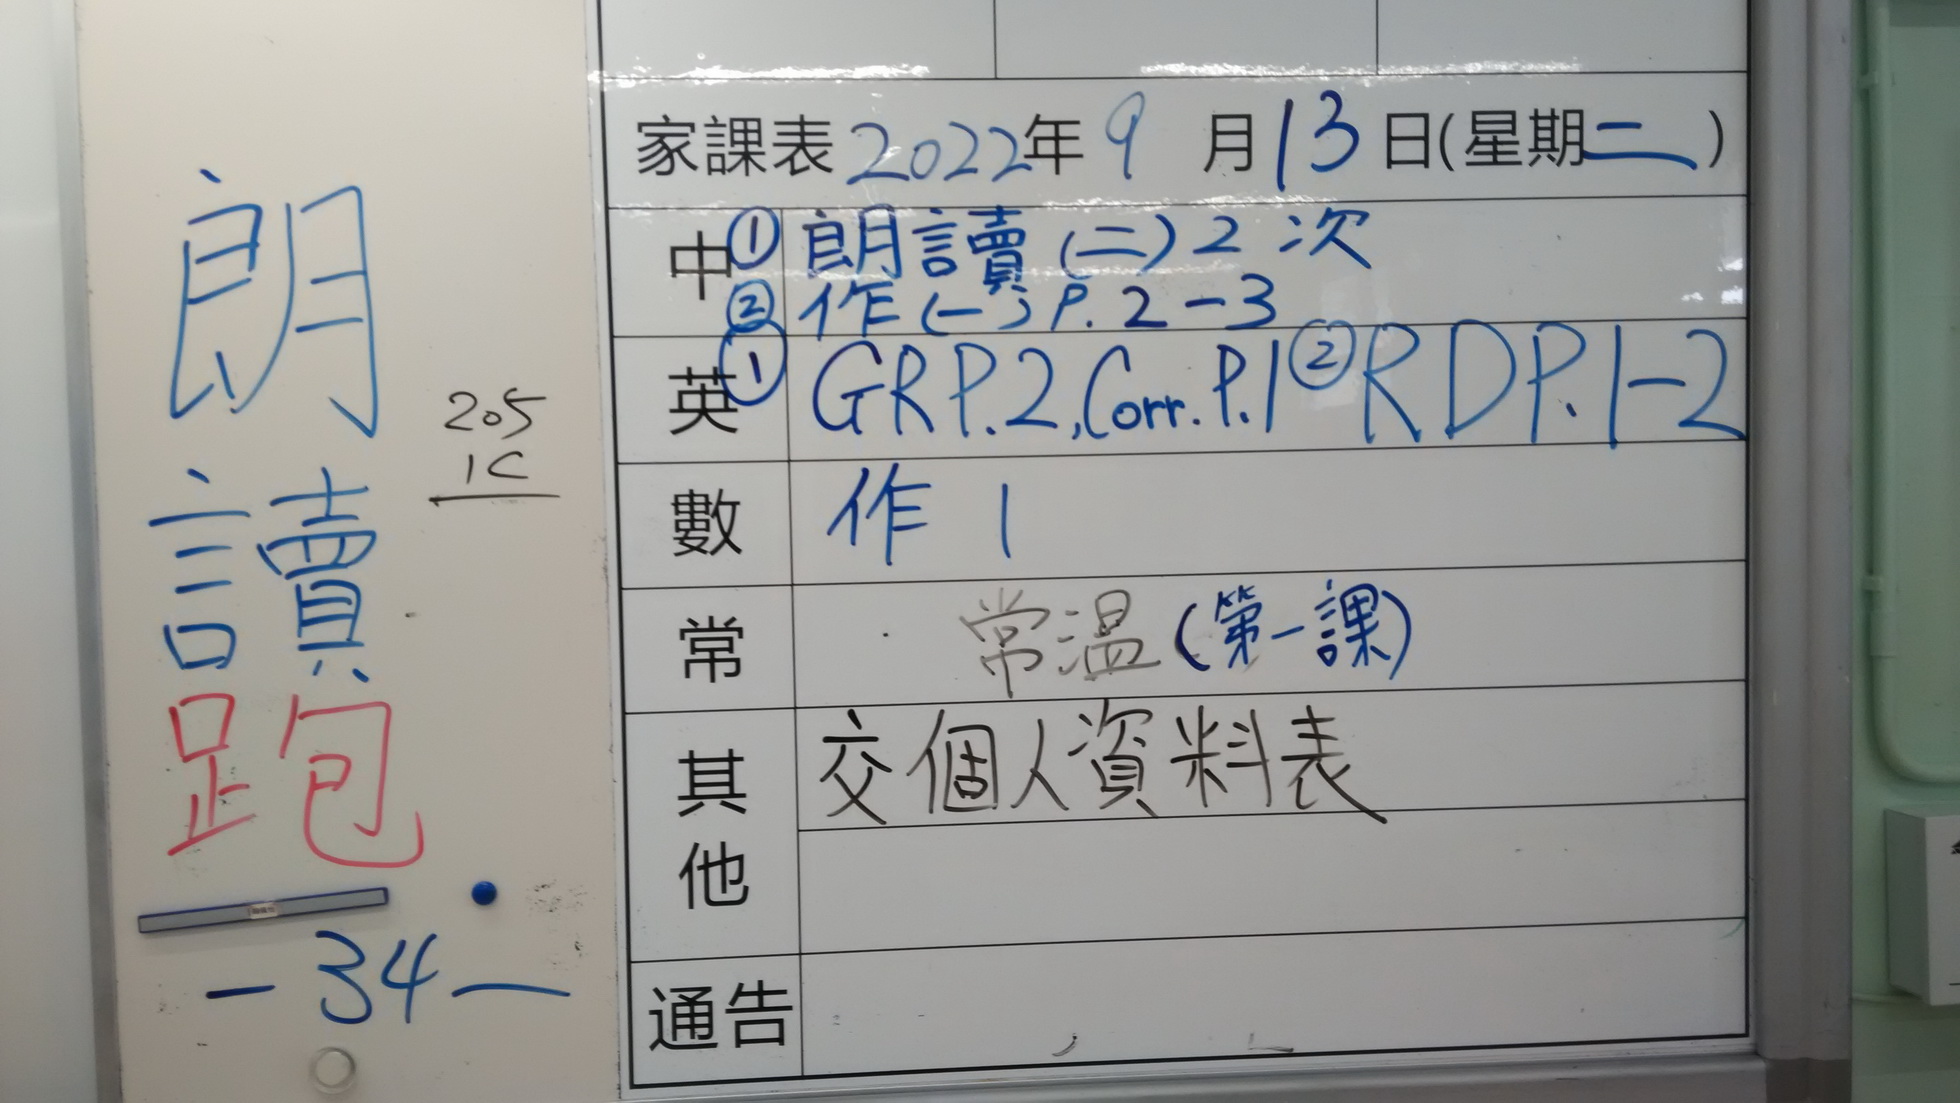 朗
讀
跑
205
1C
-34-
家課表2022年9月13日(星期二)
中 ① 朗讀(二)2次
② 作(一)P.2-3
英 ① GRP.2,Corr.P.1 ② RDP.1-2
數 作1
常 常溫(第一課)
其他 交個人資料表
通告